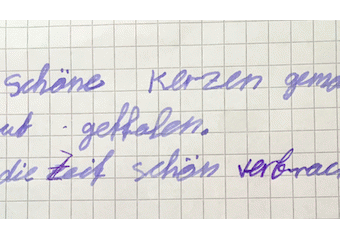 schöne Kerzen gema
ut gefhalen.
die Zeit schön verbrac